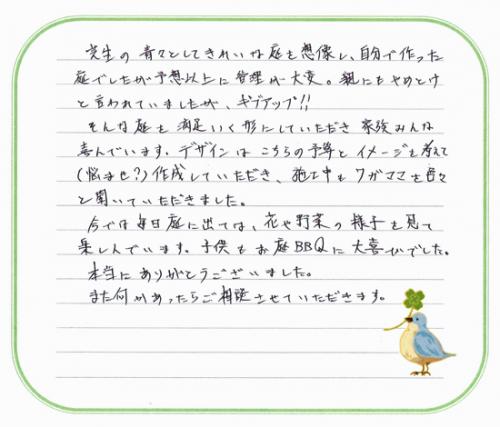 芝生の青々としてきれいな庭を想像し、自分で作った
庭でしたが予想以上に管理が大変。親にもやめとけ
と言われていましたが、ギブアップ!!
そんな庭を満足いく形にしていただき家族みんな
喜んでいます。デザインはこちらの予算とイメージを考えて
(悩ませ?)作成していただき、施工中もワガママを色々
と聞いていただきました。
今では毎日庭に出ては、花や野菜の様子を見て
楽しんでいます。子供もお庭BBQに大喜びでした。
本当にありがとうございました。
また何かあったらご相談させていただきます。